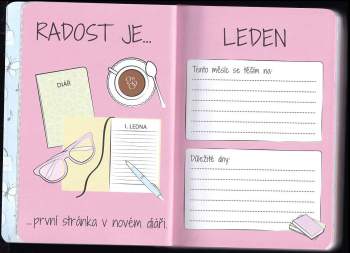 RADOST JE...
DIÁŘ
1. LEDNA
...první stránka v novém diáři.
LEDEN
Tento měsíc se těším na:
Důležité dny: